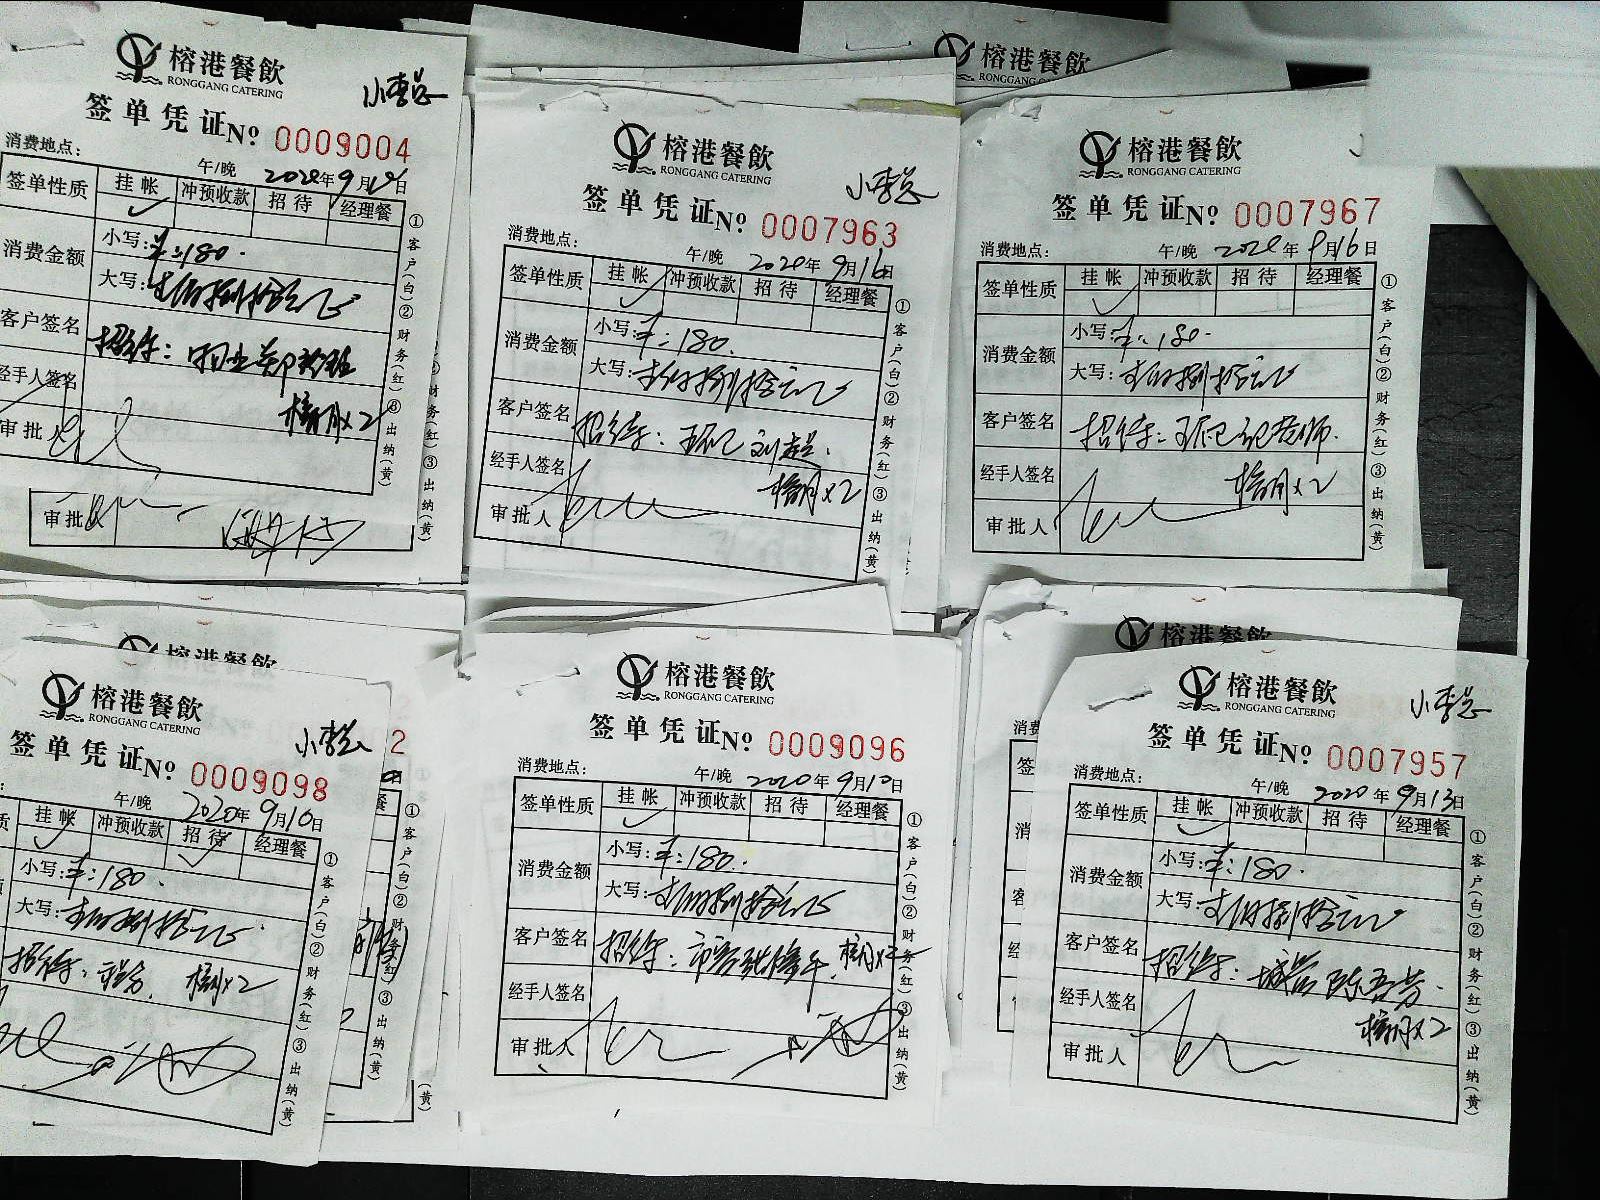 榕港餐飲
RONGGANG CATERING
小李总
签单凭证No 0009004
消费地点：
午/晚 2020年9月 日
签单性质 挂帐 冲预收款 招待 经理餐
消费金额 小写：¥:180.
大写：
客户签名 招待：
经手人签名 ×2
审批
①客户(白)②财务(红)③出纳(黄)
审批
榕港餐飲
RONGGANG CATERING
小李总
签单凭证No 0007963
消费地点：
午/晚 2020年9月16日
签单性质 挂帐 冲预收款 招待 经理餐
消费金额 小写：¥:180.
大写：壹佰捌拾元
客户签名 招待：
经手人签名 ×2
审批人
①客户(白)②财务(红)③出纳(黄)
榕港餐飲
RONGGANG CATERING
榕港餐飲
RONGGANG CATERING
签单凭证No 0007967
消费地点：
午/晚 2020年9月16日
签单性质 挂帐 冲预收款 招待 经理餐
消费金额 小写：¥:180.
大写：壹佰捌拾元
客户签名 招待：
经手人签名 ×2
审批人
①客户(白)②财务(红)③出纳(黄)
榕港餐飲
榕港餐飲
RONGGANG CATERING
小李总
签单凭证No 0009098
午/晚 2020年9月10日
挂帐 冲预收款 招待 经理餐
小写：¥:180.
大写：壹佰捌拾元
招待： ×2
①客户(白)②财务(红)③出纳(黄)
榕港餐飲
RONGGANG CATERING
签单凭证No 0009096
消费地点：
午/晚 2020年9月10日
签单性质 挂帐 冲预收款 招待 经理餐
消费金额 小写：¥:180.
大写：壹佰捌拾元
客户签名 招待： ×2
经手人签名
审批人
①客户(白)②财务(红)③出纳(黄)
榕港餐飲
榕港餐飲
RONGGANG CATERING
小李总
签单凭证No 0007957
消费地点：
午/晚 2020年9月13日
签单性质 挂帐 冲预收款 招待 经理餐
消费金额 小写：¥:180.
大写：壹佰捌拾元
客户签名 招待：
经手人签名 ×2
审批人
①客户(白)②财务(红)③出纳(黄)